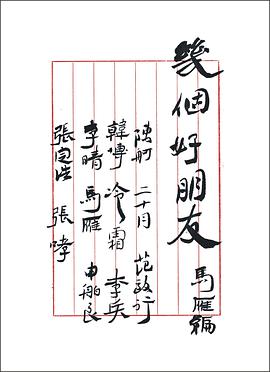 幾個好朋友
馬雁編
陳舸 二十月 范致行
韓博 冷霜 李兵
李晴 馬雁 申舶良
張定浩 張哮